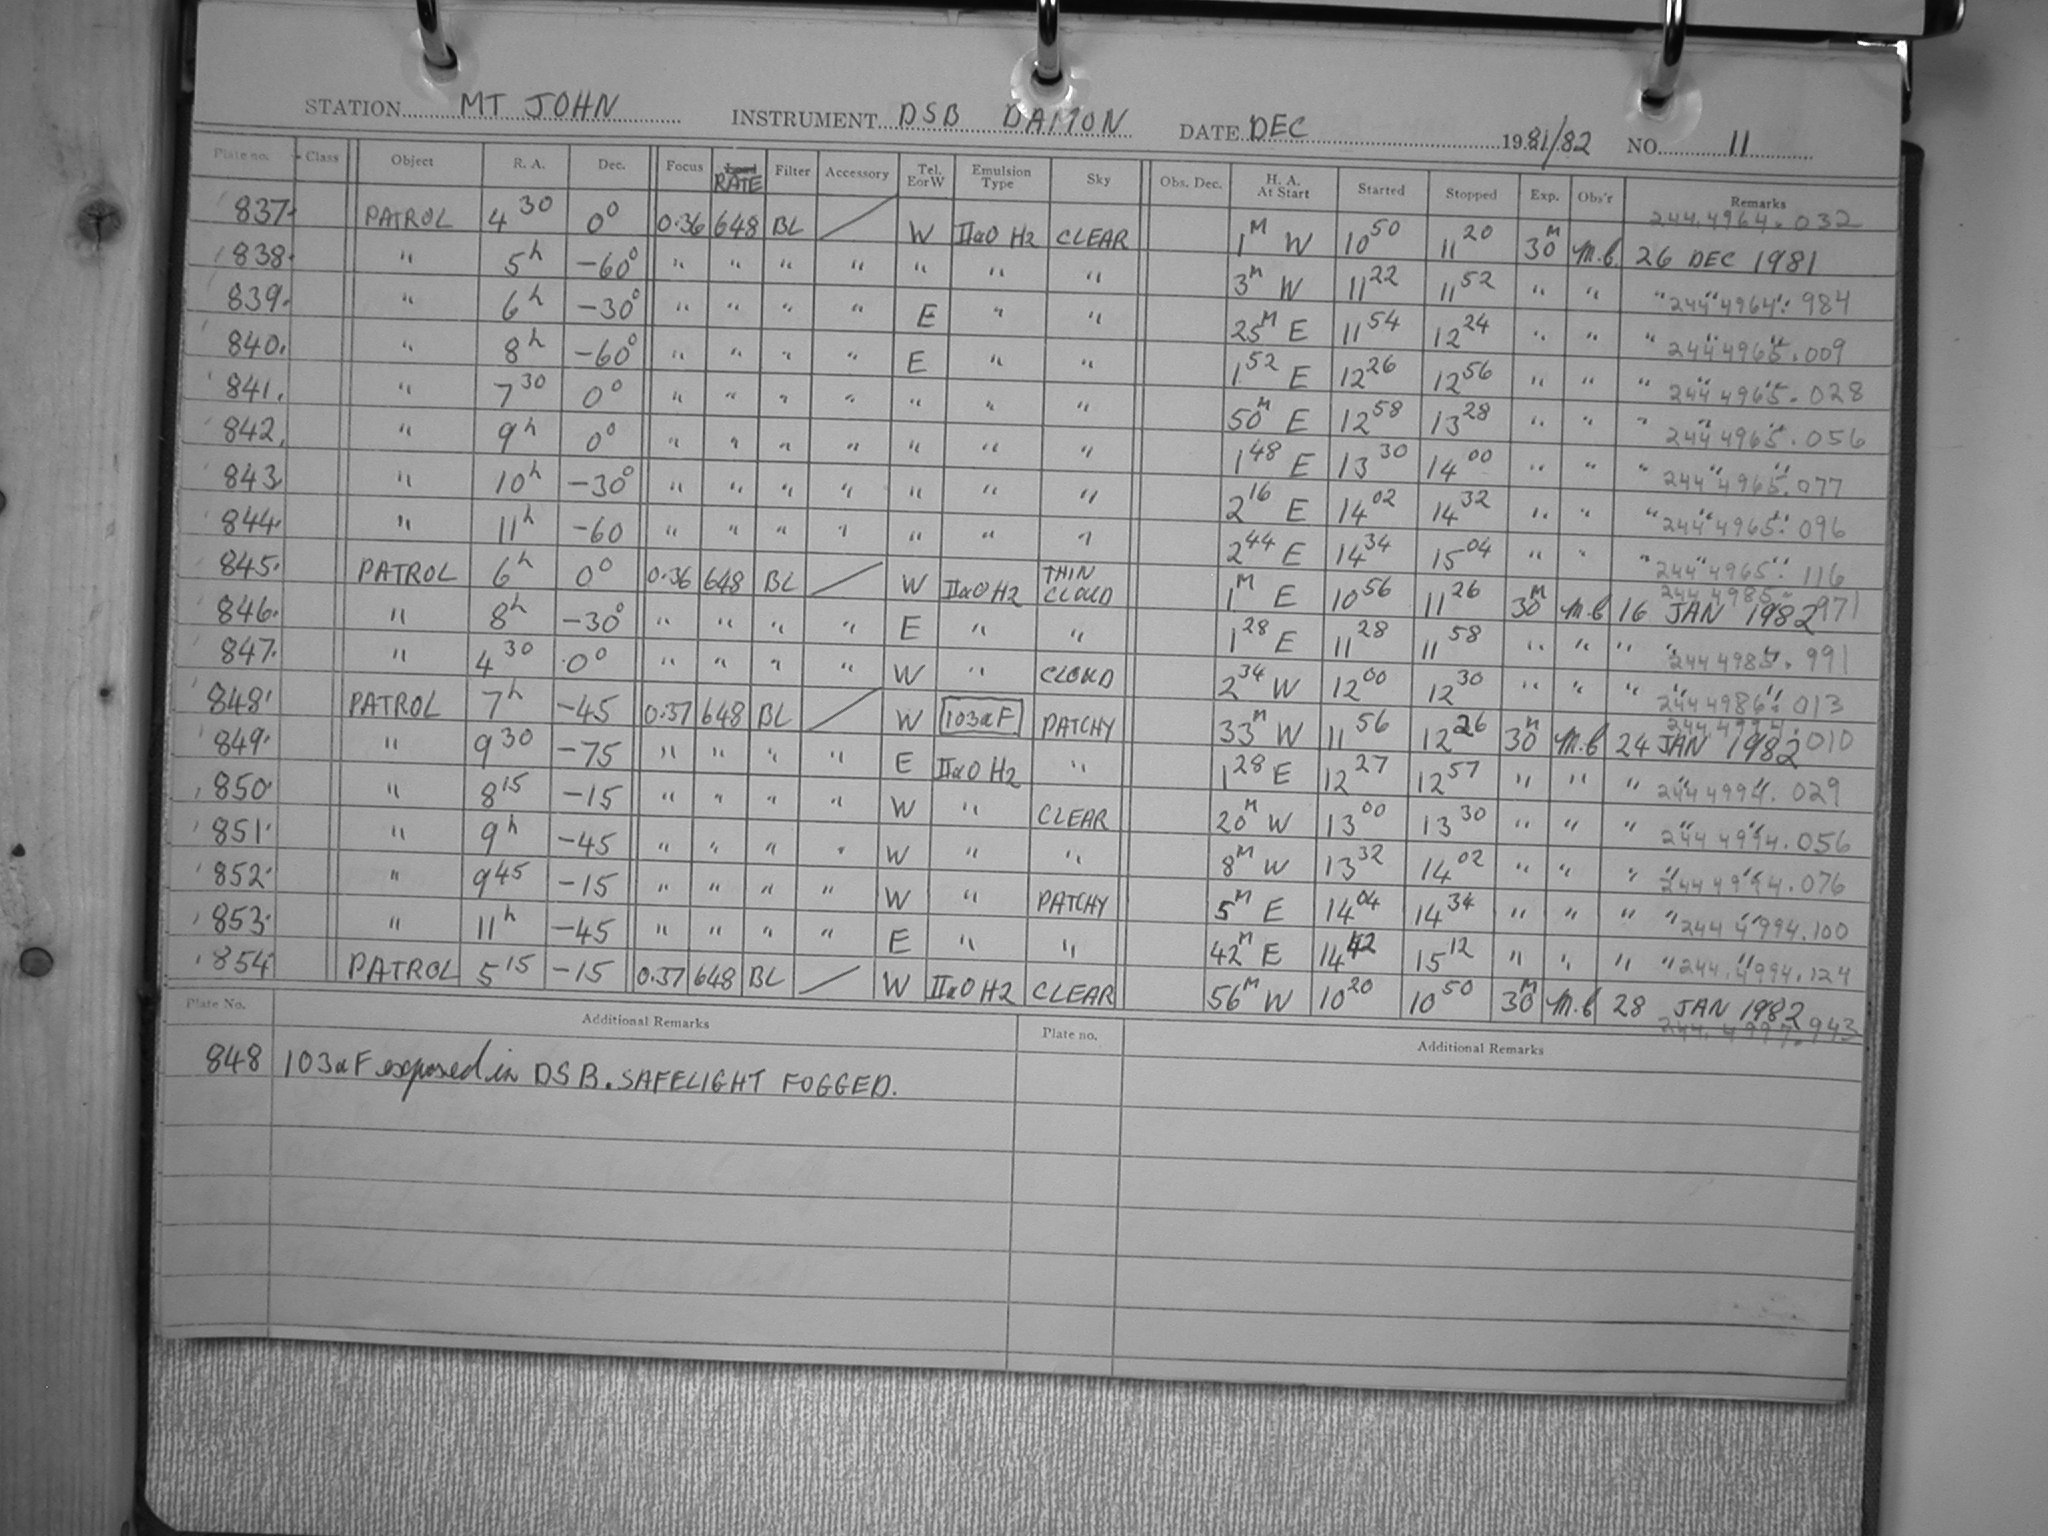 STATION MT JOHN INSTRUMENT DSB DAMON DATE DEC 1981/82 NO. 11
Plate no. Class Object R. A. Dec. Focus RATE Filter Accessory Tel. E or W Emulsion Type Sky Obs. Dec. H. A. At Start Started Stopped Exp. Obs'r Remarks
244.4964.032
837. PATROL 4 30 0° 0.36 648 BL / W IIaO H2 CLEAR 1M W 10 50 11 20 30M M.B 26 DEC 1981
838. " 5h -60° " " " " " " " 3M W 11 22 11 52 " " " " 244 4964. 984
839. " 6h -30° " " " " E " " 25M E 11 54 12 24 " " " " " 244 4965.009
840. " 8h -60° " " " " E " " 1 52 E 12 26 12 56 " " " " " 244 4965.028
841. " 7 30 0° " " " " " " " 50M E 12 58 13 28 " " " " " 244 4965.056
842. " 9h 0° " " " " " " " 1 48 E 13 30 14 00 " " " " " 244 4965.077
843 " 10h -30° " " " " " " " 2 16 E 14 02 14 32 " " " " " 244 4965.096
844. " 11h -60 " " " " " " " 2 44 E 14 34 15 04 " " " " " 244 4965. 116
845. PATROL 6h 0° 0.36 648 BL / W IIaO H2 THIN CLOUD 1M E 10 56 11 26 30M M.B 16 JAN 1982 244 4985. 971
846. " 8h -30° " " " " E " " 1 28 E 11 28 11 58 " " " " 244 4985. 991
847. " 4 30 0° " " " " W " CLOUD 2 34 W 12 00 12 30 " " " " " 244 4986. 013
848. PATROL 7h -45 0.37 648 BL / W 103aF PATCHY 33M W 11 56 12 26 30M M.B 24 JAN 1982 244 4994. 010
849. " 9 30 -75 " " " " E IIaO H2 " 1 28 E 12 27 12 57 " " " 244 4994. 029
850. " 8 15 -15 " " " " W " CLEAR 20M W 13 00 13 30 " " " " " 244 4994.056
851. " 9h -45 " " " " W " " 8M W 13 32 14 02 " " " " " 244 4994.076
852. " 9 45 -15 " " " " W " PATCHY 5M E 14 04 14 34 " " " " " 244 4994.100
853. " 11h -45 " " " " E " " 42M E 14 42 15 12 " " " " " 244.4994.124
854 PATROL 5 15 -15 0.37 648 BL / W IIaO H2 CLEAR 56M W 10 20 10 50 30M M.B 28 JAN 1982
244. 4997.943
Plate No. Additional Remarks Plate no. Additional Remarks
848 103aF exposed in DSB. SAFELIGHT FOGGED.